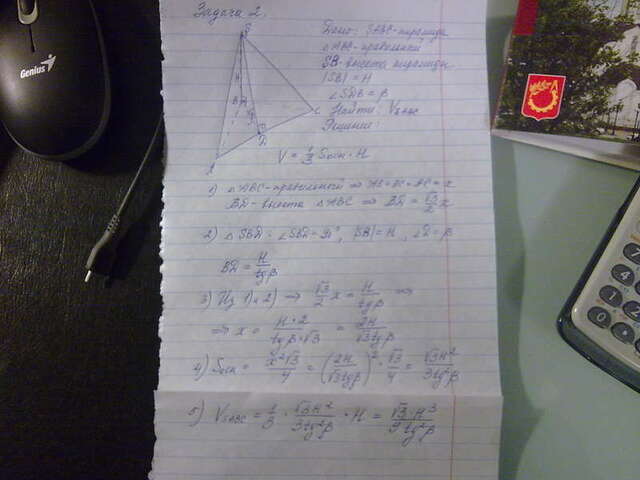 Genius
Задача 2.
Дано: SABC-пирамида
△ABC-правильный
SB-высота пирамиды
|SB| = H
∠SDB = β
Найти: V SABC
Решение:
S
H
B
C
D
A
V = 1/3 Sосн · H
1) △ABC-правильный ⇒ AB=BC=AC=x
BD-высота △ABC ⇒ BD = √3/2 x
2) △SBD - ∠SBD=90°, |SB|=H, ∠D=β
BD = H/tgβ
3) Из 1) и 2) ⇒ √3/2 x = H/tgβ ⇒
⇒ x = H·2/tgβ·√3 = 2H/√3tgβ
4) Sосн = x²√3/4 = (2H/√3tgβ)² · √3/4 = √3H²/3tg²β
5) V SABC = 1/3 · √3H²/3tg²β · H = √3·H³/9tg²β